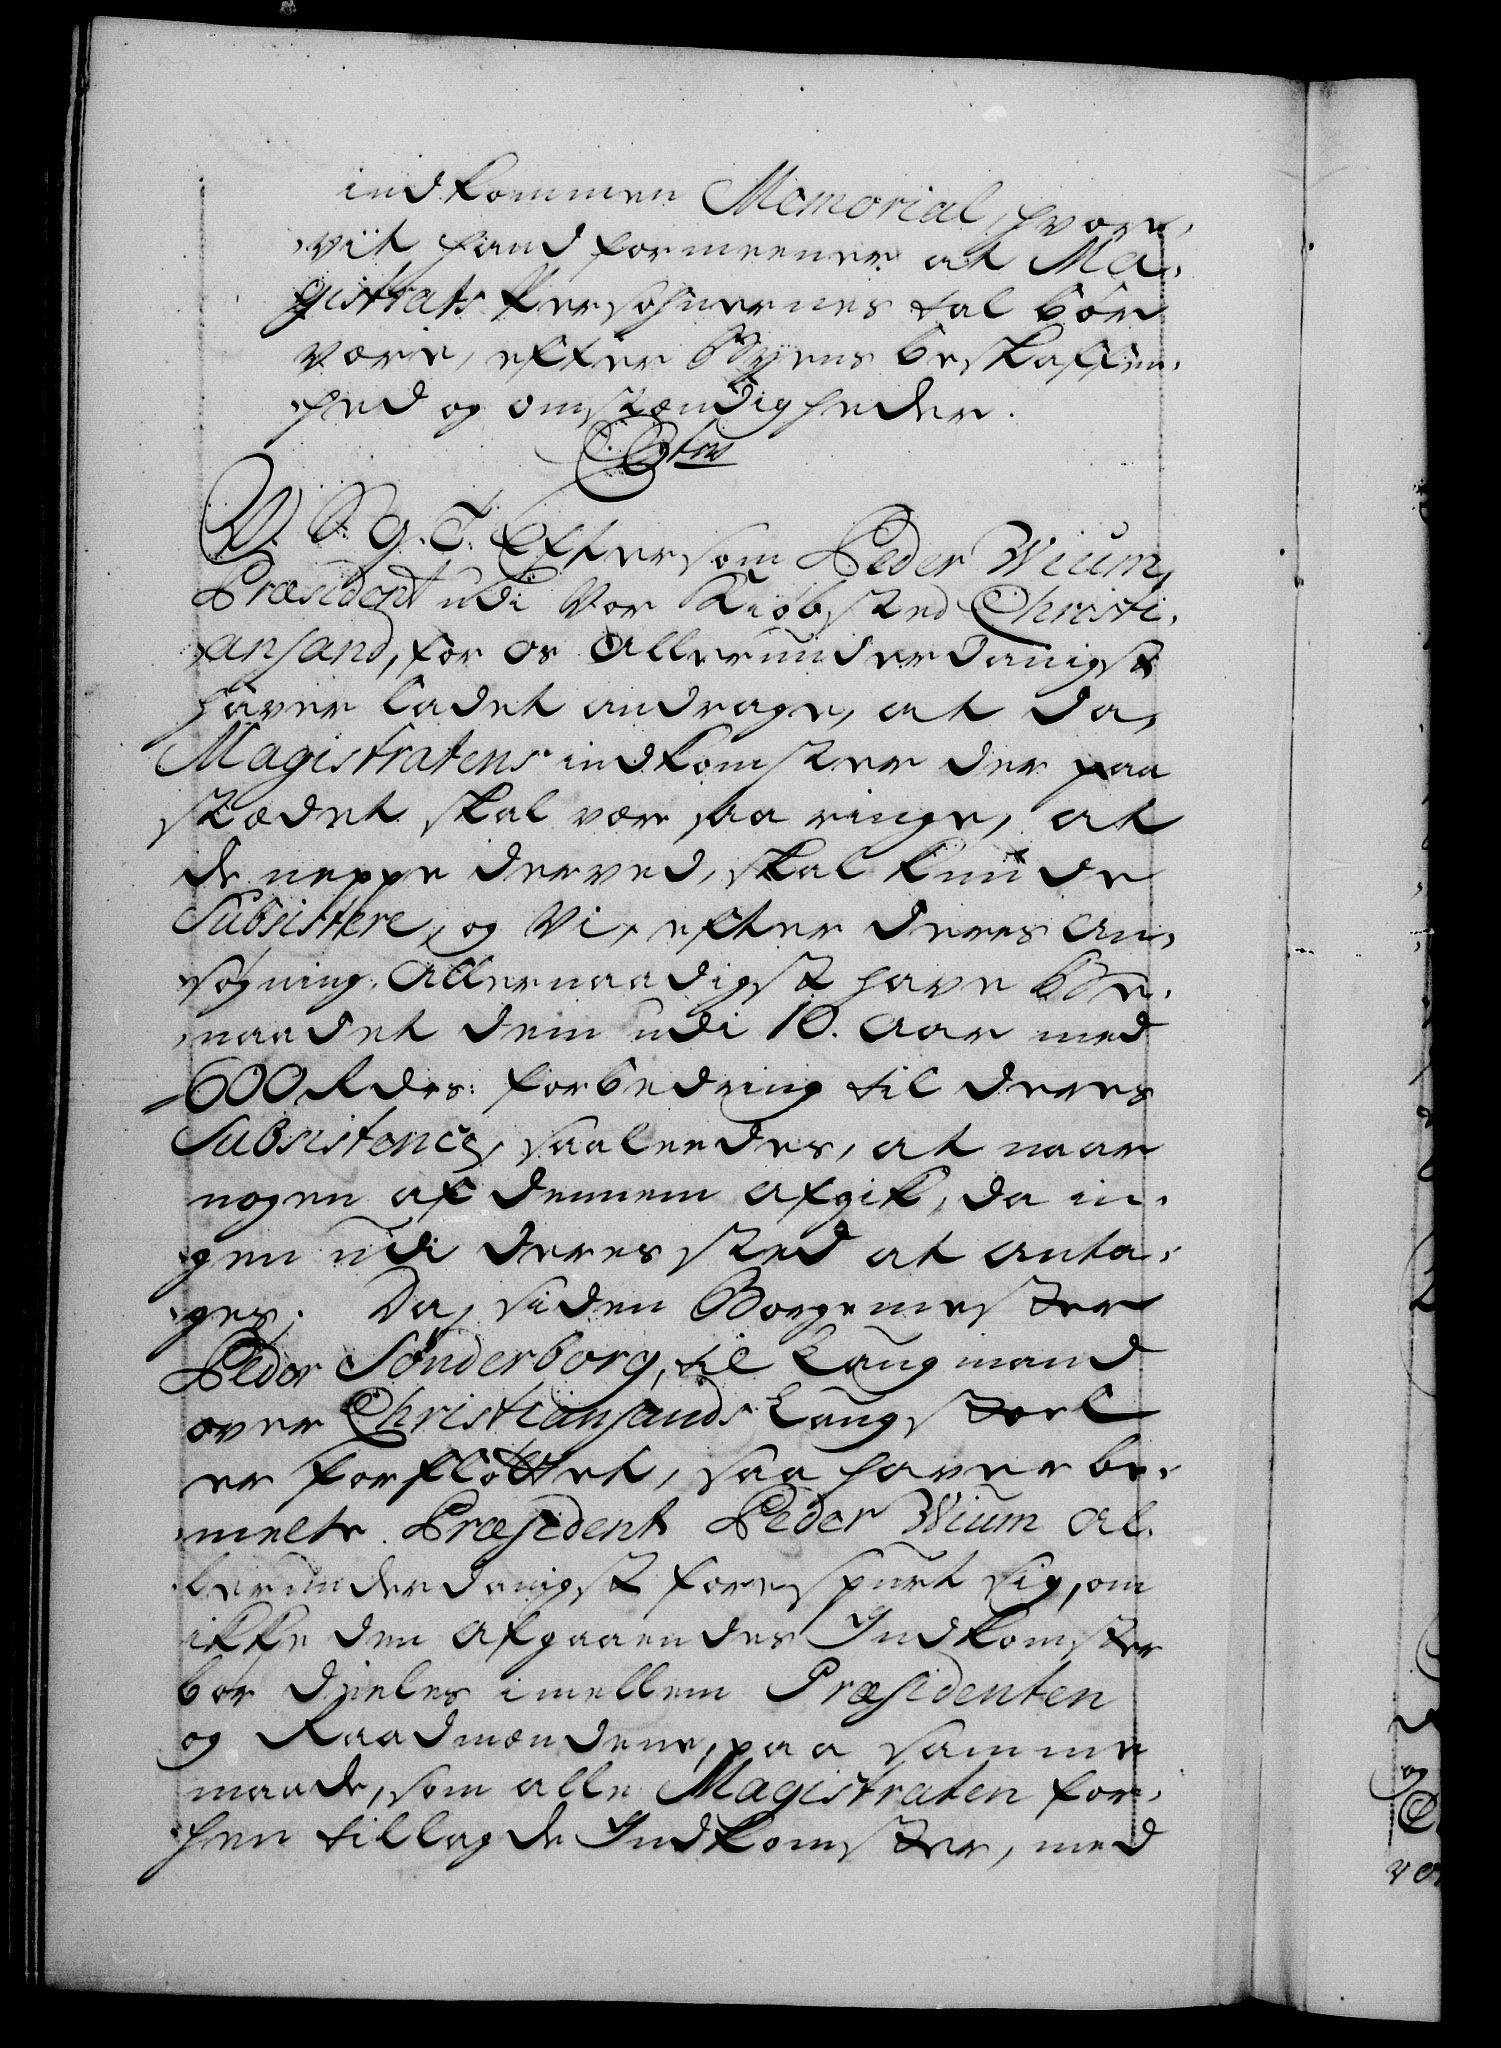 indkommen Memorial, hvor,
,vit hand formeener at Ma,
gistrats Persohnernes tal bør
være, efter Byens beskaffen,
,hed og omstændigheder.
V. S. G. T. Eftersom Peder Wium,
Præsident udi Vor Kiøbsted Christi,
,ansand, for os Allerunderdanigst
haver ladet andrage, at da,
Magistratens indkomster der paa
stædet skal være saa ringe, at
de neppe derved, skal kunde
Subsistere, og Vi, efter deres an,
søgning, Allernaadigst have Be,
,naadet dem udi 10. Aar med
600 Rdrs: forbedring til deres
Subsistence, saaleedes, at naar
nogen af dennem afgik, da in,
,gen udi deres sted at anta,
,ges; Da, siden Borgemester
Peder Sønderborg, til Laugmand
over Christiansands Laugstoel
er forflöttet, saa haver be,
,melte Præsident Peder Wium Al,
,lerunderdanigst forespurt sig, om
ikke den afgaaendes Indkomster
bør deeles imellem Præsidenten
og Raadmændene, paa samme
maade, som alle Magistraten for,
,hen tillagde Indkomster, med